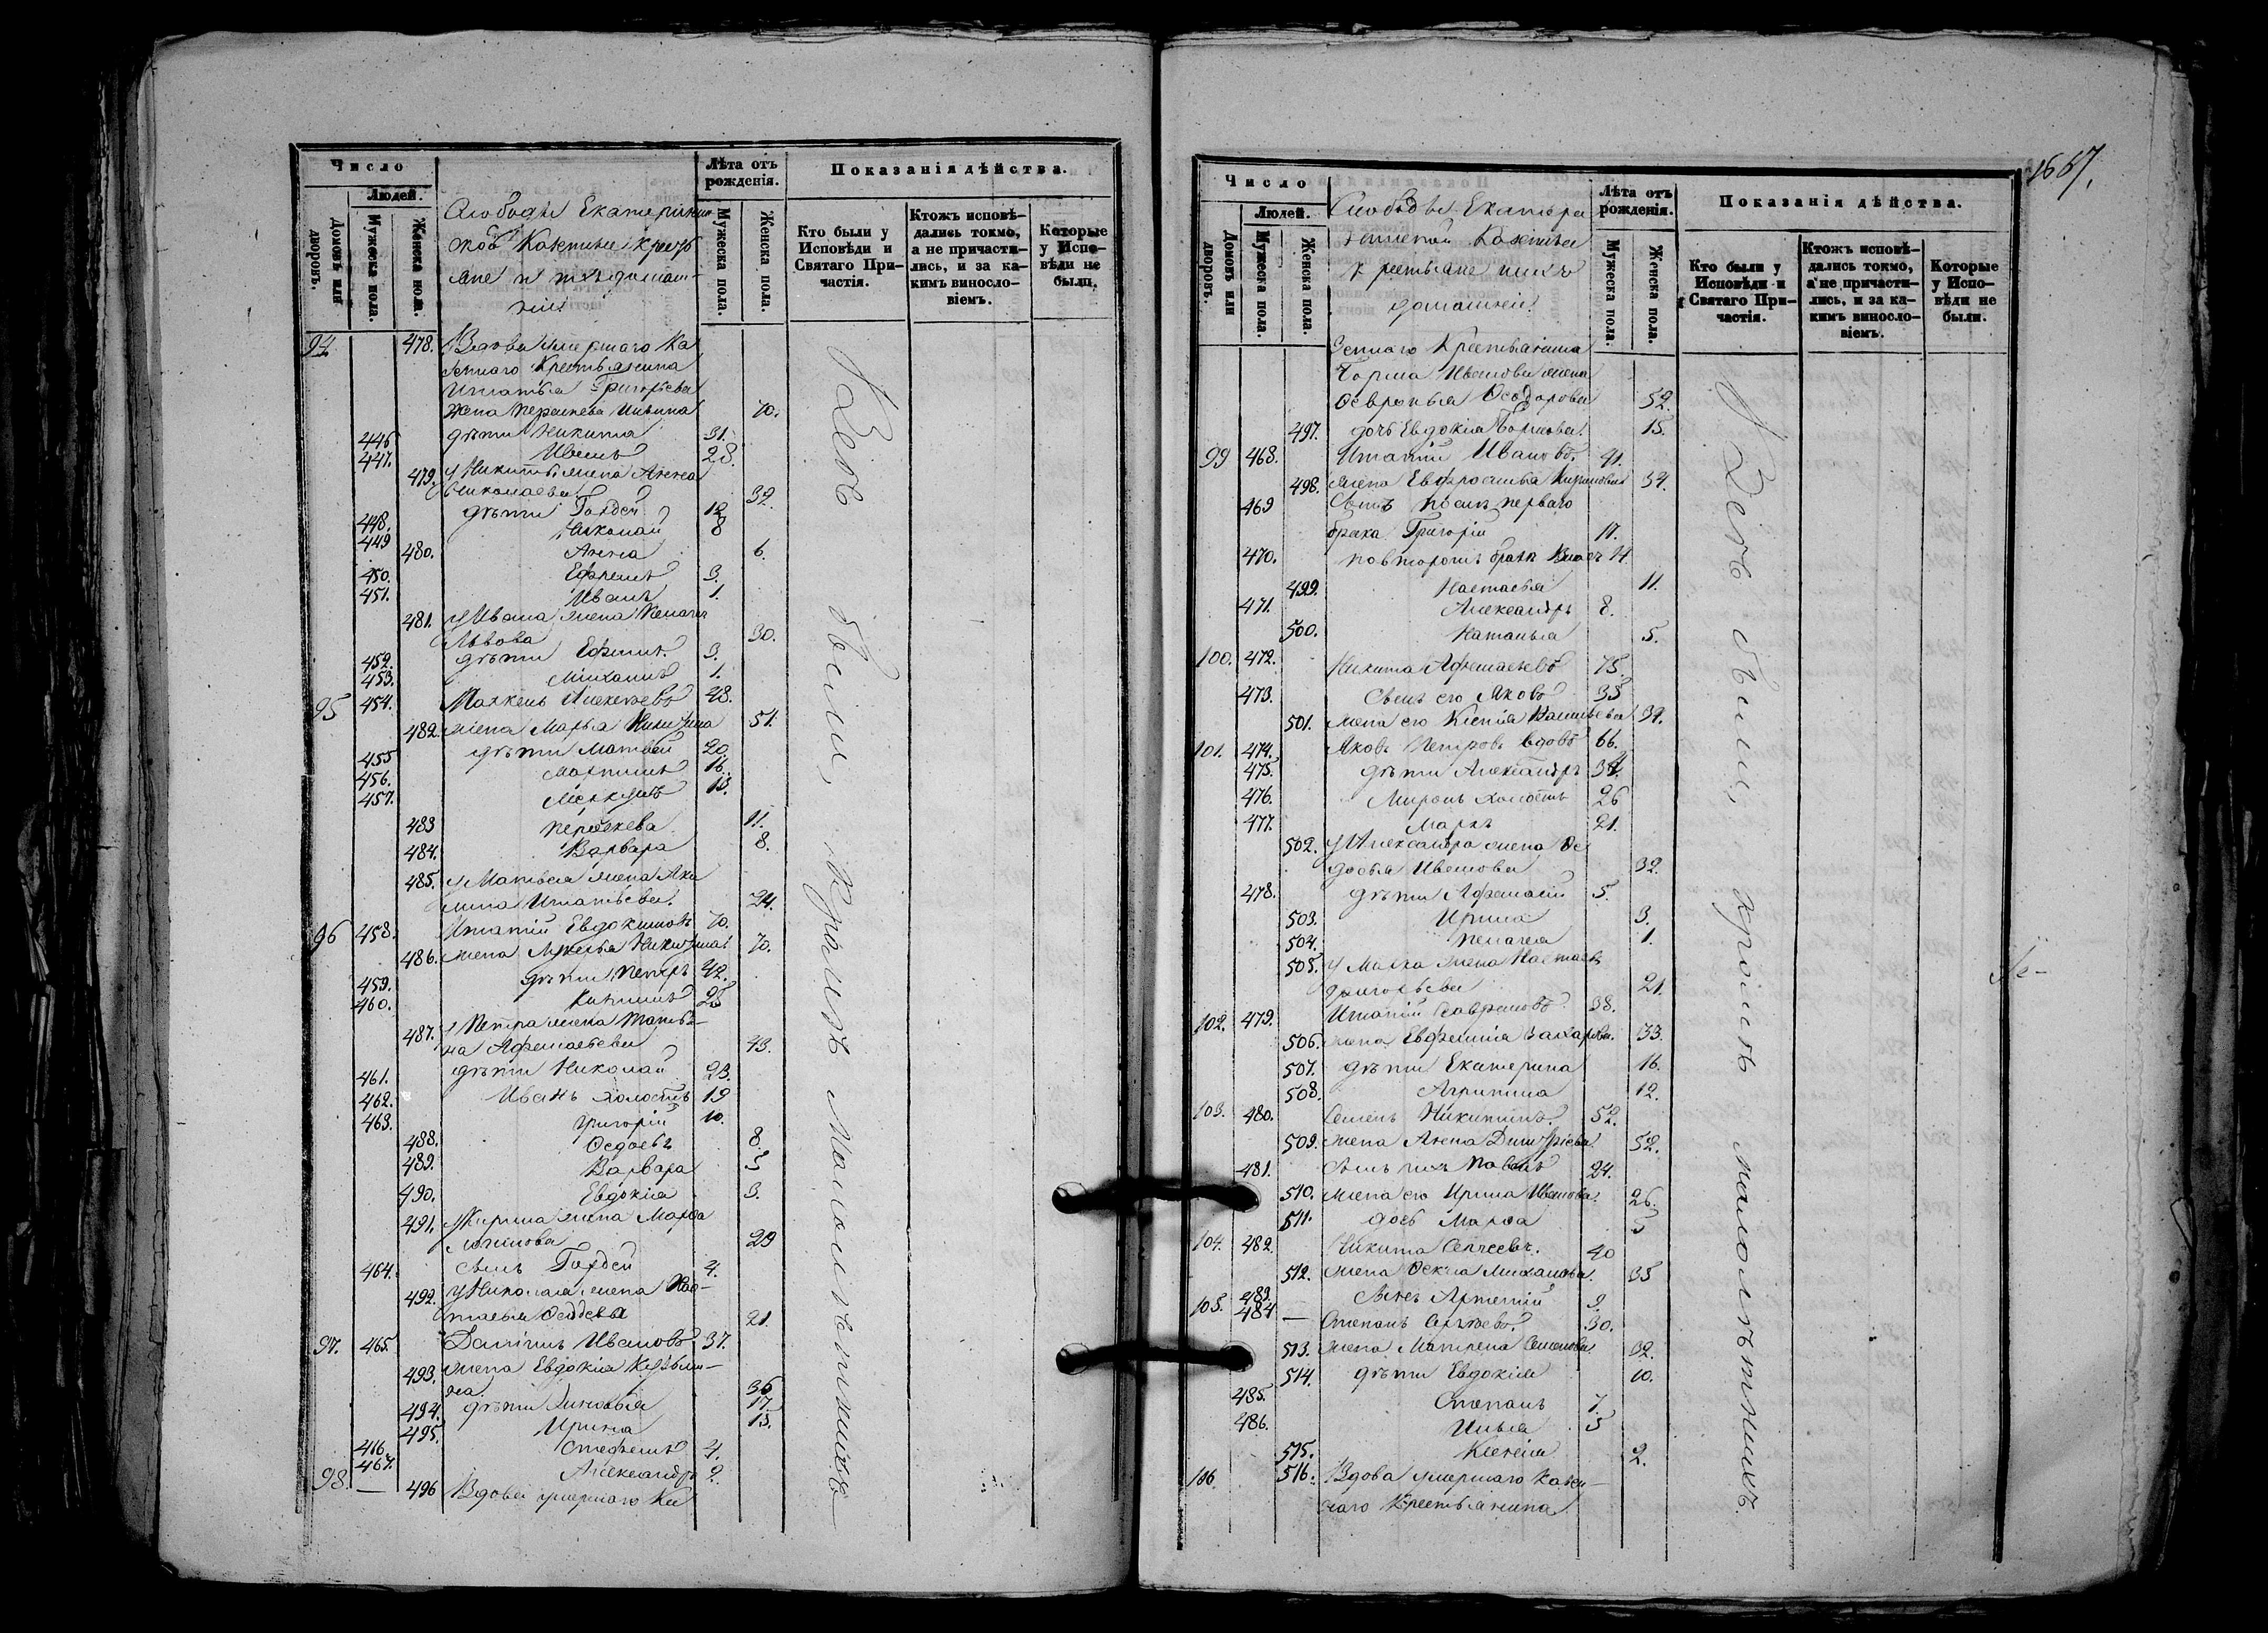 Число
Людей.
Домовъ или дворовъ.
Мужеска пола.
Женска пола.
Слободы Екатеринин
ской Казенные кресть
яне и ихъ домаш-
ніи
Лѣта отъ рожденія.
Мужеска пола.
Женска пола.
Показанія дѣйства.
Кто были у Исповѣди и Святаго При-частія.
Ктожъ исповѣ-дались токмо, а не причасти-лись, и за ка-кимъ винносло-віемъ.
Которые у Испо-вѣди не были.
94 478. Вдова умершаго Ка
зеннаго Крестьянина
Игнатія Григорьева
жена Параскева Ильина 70.
446 дѣти Никита 31.
447. Иванъ 28.
479. у Никиты жена Анна
Николаева 32.
448. дѣти Гордей 12
449 Николай 8
480. Анна 6.
450. Ефремъ 3.
451. Иванъ 1.
481. у Ивана жена Пелагея
Львова 30.
452. дѣти Ефимъ 3.
453. Михаилъ 1.
95 454. Маркелъ Алексѣевъ 48.
482. жена Марья Никитина 51.
455 дѣти Матвей 20.
456. Мартинъ 16.
457. Меркулъ 13.
483 Параскева 11.
484. Варвара 8.
485. у Матвея жена Аку
лина Игнатьева 24.
96 458. Игнатій Евдокимовъ 70.
486. жена Лукерья Никитина 70.
459. дѣти Петръ 42.
460. Кирилъ 28
487. у Петра жена Татья-
на Афанасьева 43.
461. дѣти Николай 23.
462. Иванъ холостъ 19
463. Григорій 10.
488. Ѳедосья 8.
489. Варвара 5
490. Евдокія 3.
491. у Кирила жена Марѳа
Логинова 29
464. сынъ Гордей 4.
492. у Николая жена Нас-
тасья 21.
97. 465. Даніилъ Ивановъ 37.
493. жена Евдокія Кузьми-
на 36
494. дѣти Зиновья 17.
495. Ирина 13.
466 Стефанъ 4.
467. Александръ 2.
98. — 496 Вдова умершаго Ка
Всѣ были, кромѣ малолѣтнихъ
1667.
Число
Людей.
Домовъ или дворовъ.
Мужеска пола.
Женска пола.
Слободы Екатери
нинской Казенные
крестьяне и ихъ
домашніи
Лѣта отъ рожденія.
Мужеска пола.
Женска пола.
Показанія дѣйства.
Кто были у Исповѣди и Святаго При-частія.
Ктожъ исповѣ-дались токмо, а не причасти-лись, и за ка-кимъ винносло-віемъ.
Которые у Испо-вѣди не были.
зеннаго Крестьянина
Иванова жена
Ѳевронья Ѳеодорова 52.
497. дочь Евдокія 15.
99 468. Игнатій Ивановъ 41.
498. жена Евфросинья 34.
469 Сынъ перваго
брака Григорій 17.
470. повторомъ бракѣ Власъ 14
499. Настасья 11.
471. Александръ 8.
500. Наталья 5.
100. 472. Никита Афанасьевъ 75.
473. Сынъ его Яковъ 35
501. жена его Ксенія Васильева 32.
101. 474. Яковъ Петровъ вдовъ 66.
475. дѣти Александръ
476. Миронъ холостъ 26
477. Маркъ 21.
502. у Александра жена Ѳе
досья Иванова 32.
478. дѣти Афанасій 5.
503. Ирина 3.
504. Пелагея 1.
505. у Марка жена Настасья
Григорьева 21.
102. 479. Игнатій 38.
506. жена Евфимія Захарова 33.
507. дѣти Екатерина 16.
508. Агрипина 12.
103. 480. Семенъ Никитинъ 52.
509. жена Анна Дмитріева 52.
481. Сынъ ихъ Павелъ 24.
510. жена его Ирина Иванова 26.
511. дочь Марѳа 5
104. 482. Никита Сергеевъ 40
512. жена Ѳекла Михайлова 35
483. Сынъ Артемій 9.
105. 484 — Степанъ Сергѣевъ 30.
513. жена Матрена Семенова 32.
514. дѣти Евдокія 10.
485. Степанъ 7.
486. Илья 5
515. Ксенія 2.
106. 516. Вдова умершаго Казен-
наго Крестьянина
Всѣ были, кромѣ малолѣтнихъ.